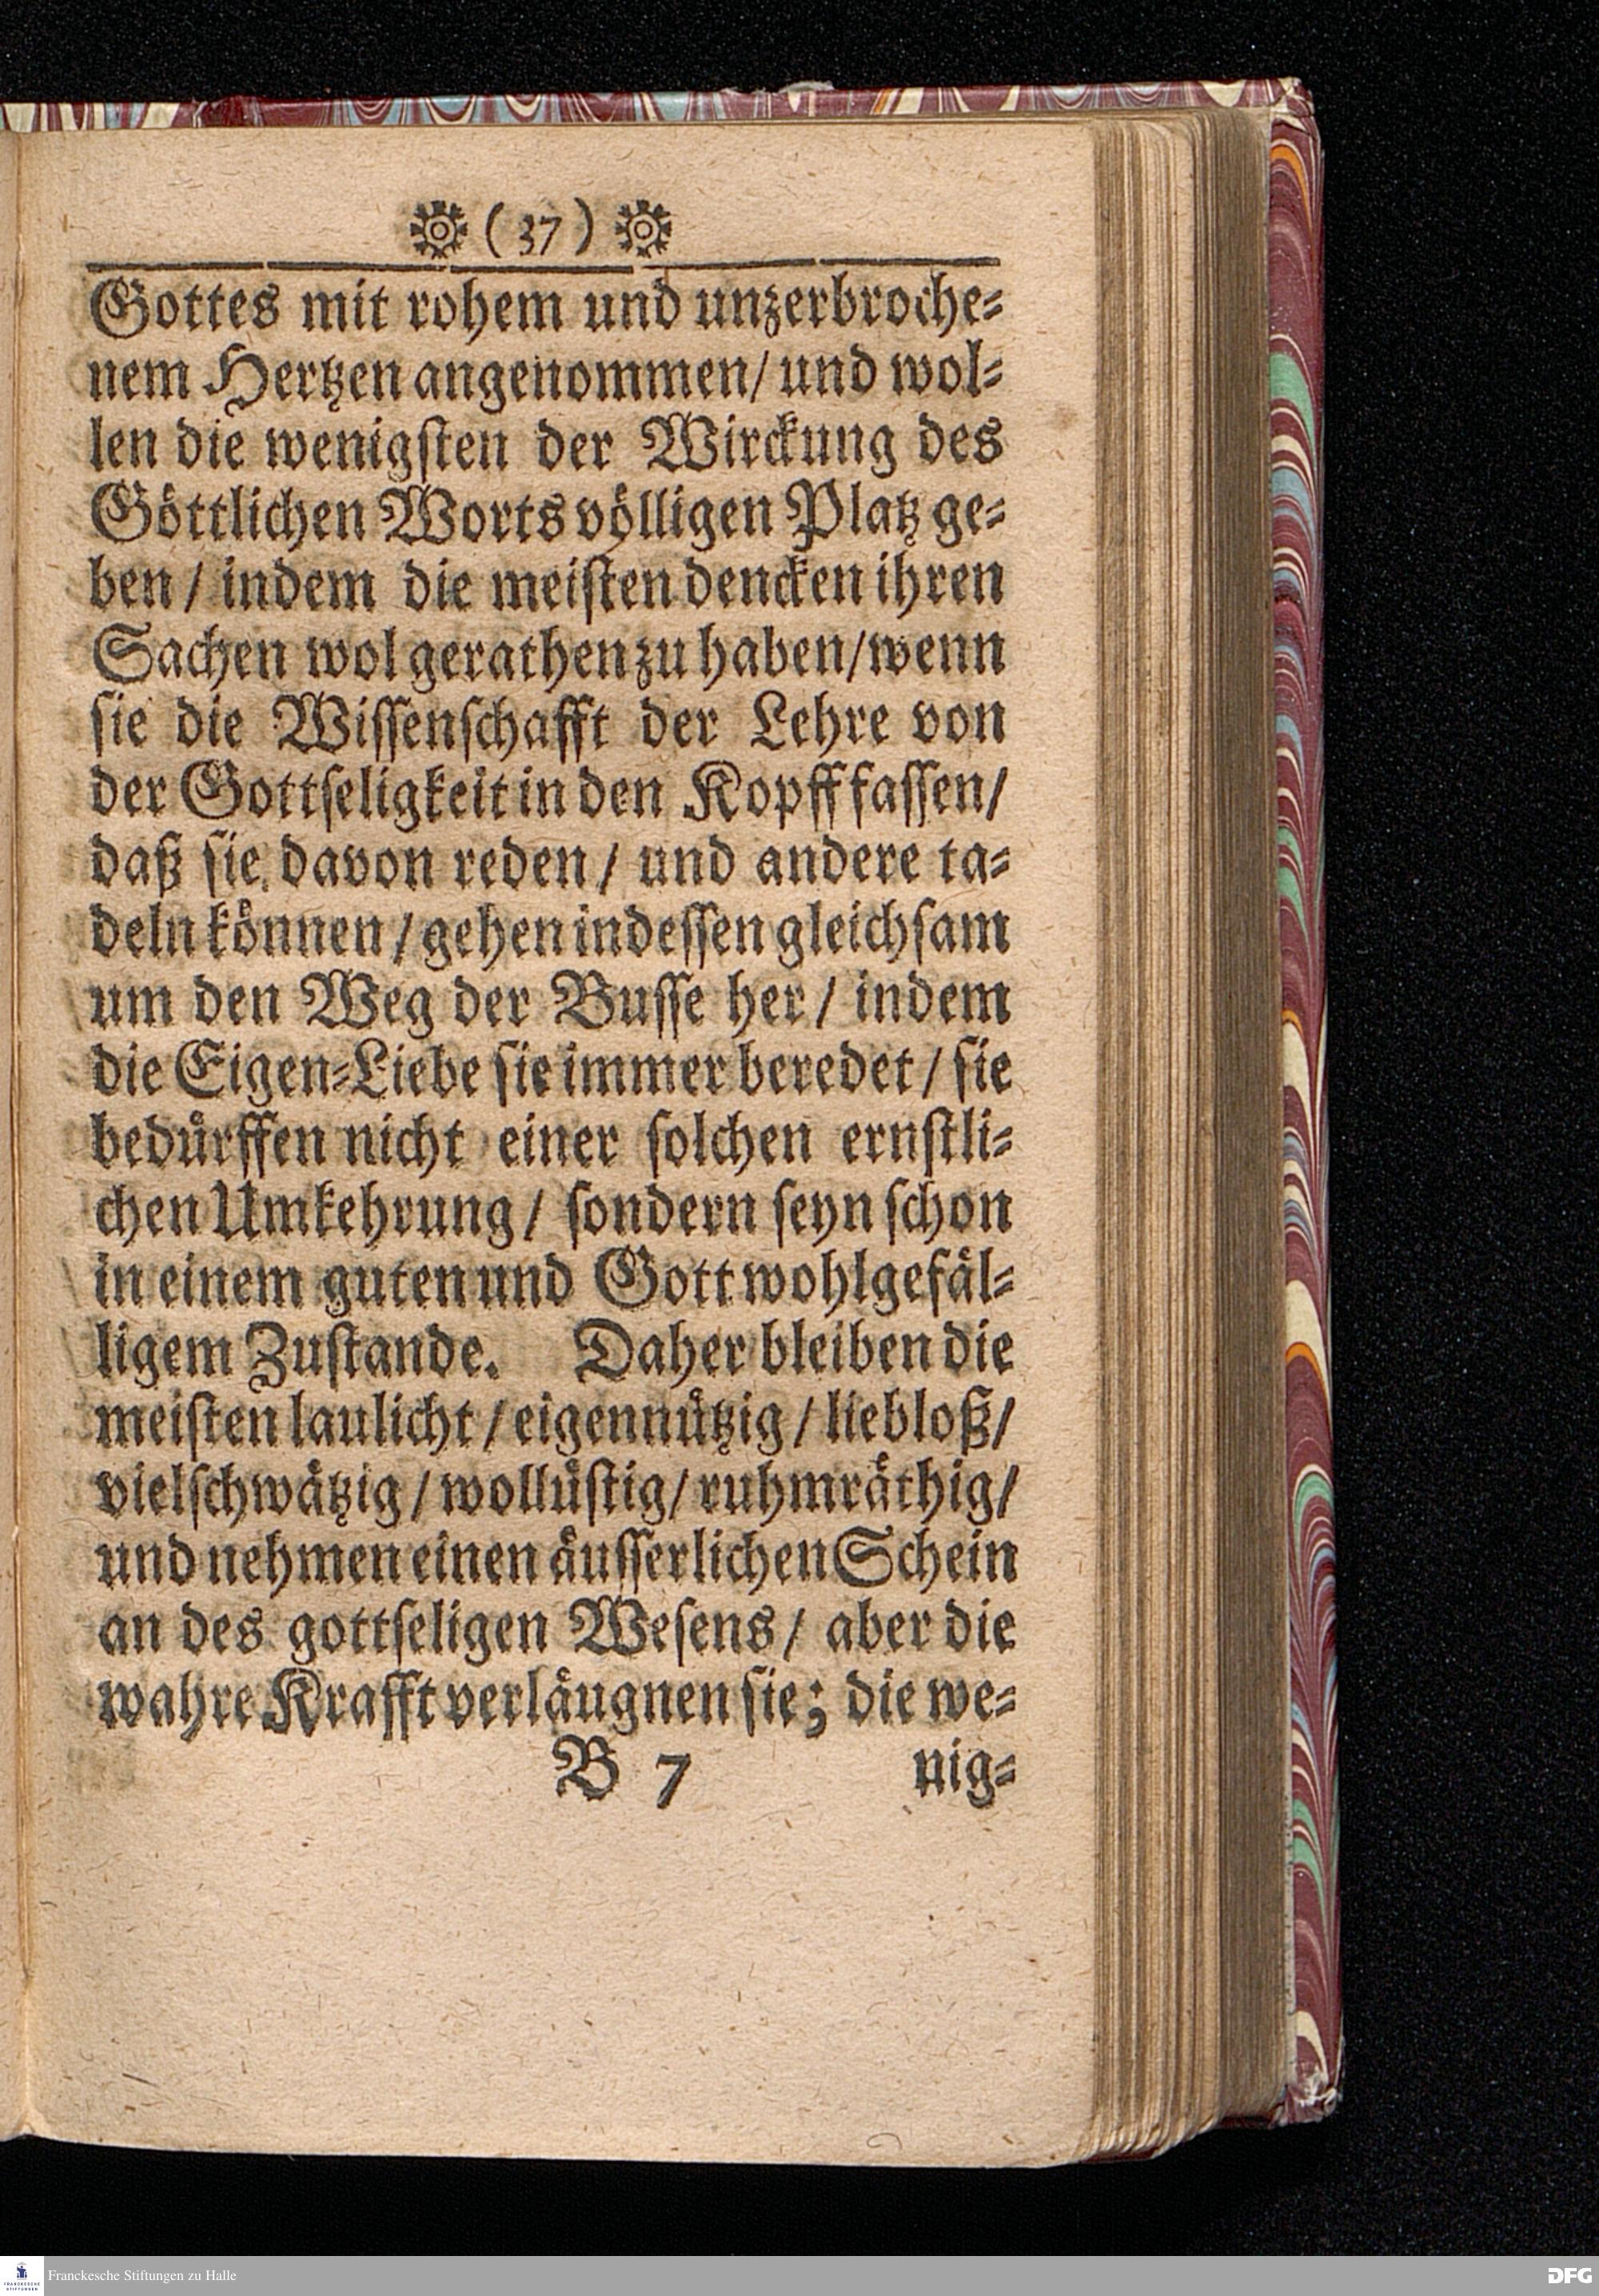 ( 37 )
Gottes mit rohem und unzerbroche-
nem Hertzen angenommen/ und wol-
len die wenigsten der Wirckung des
Göttlichen Worts völligen Platz ge-
ben / indem die meisten dencken ihren
Sachen wol gerathen zu haben/wenn
sie die Wissenschafft der Lehre von
der Gottseligkeit in den Kopff fassen/
daß sie davon reden / und andere ta-
deln können / gehen indessen gleichsam
um den Weg der Busse her / indem
die Eigen-Liebe sie immer beredet / sie
bedürffen nicht einer solchen ernstli-
chen Umkehrung / sondern seyn schon
in einem guten und Gott wohlgefäl-
ligem Zustande. Daher bleiben die
meisten laulicht / eigennützig / liebloß/
vielschwätzig / wollüstig/ ruhmräthig/
und nehmen einen äusserlichen Schein
an des gottseligen Wesens / aber die
wahre Krafft verläugnen sie; die we-
B 7 nig-
FRANCKESCHE STIFTUNGEN
Franckesche Stiftungen zu Halle
DFG